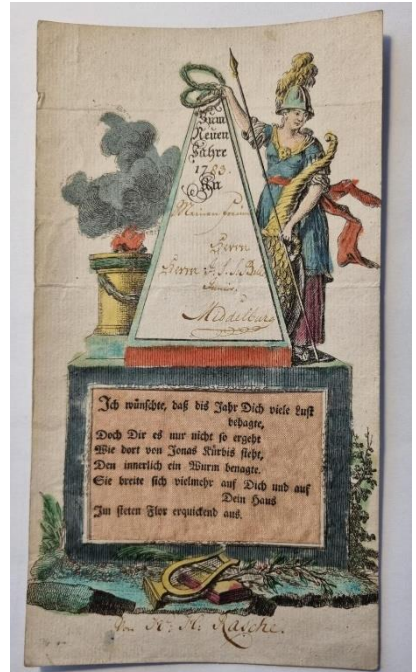 Zum
Neuen
Jahre
1783.
An
Meinen Freund
Herrn
Herrn
Junior.
Middelburg
Ich wünschte, daß dis Jahr Dich viele Lust
behagte,
Doch Dir es nur nicht so ergeht
Wie dort von Jonas Kürbis steht,
Den innerlich ein Wurm benagte.
Sie breite sich vielmehr auf Dich und auf
Dein Haus
Im steten Flor erquickend aus.
Von H. H. Rasche.